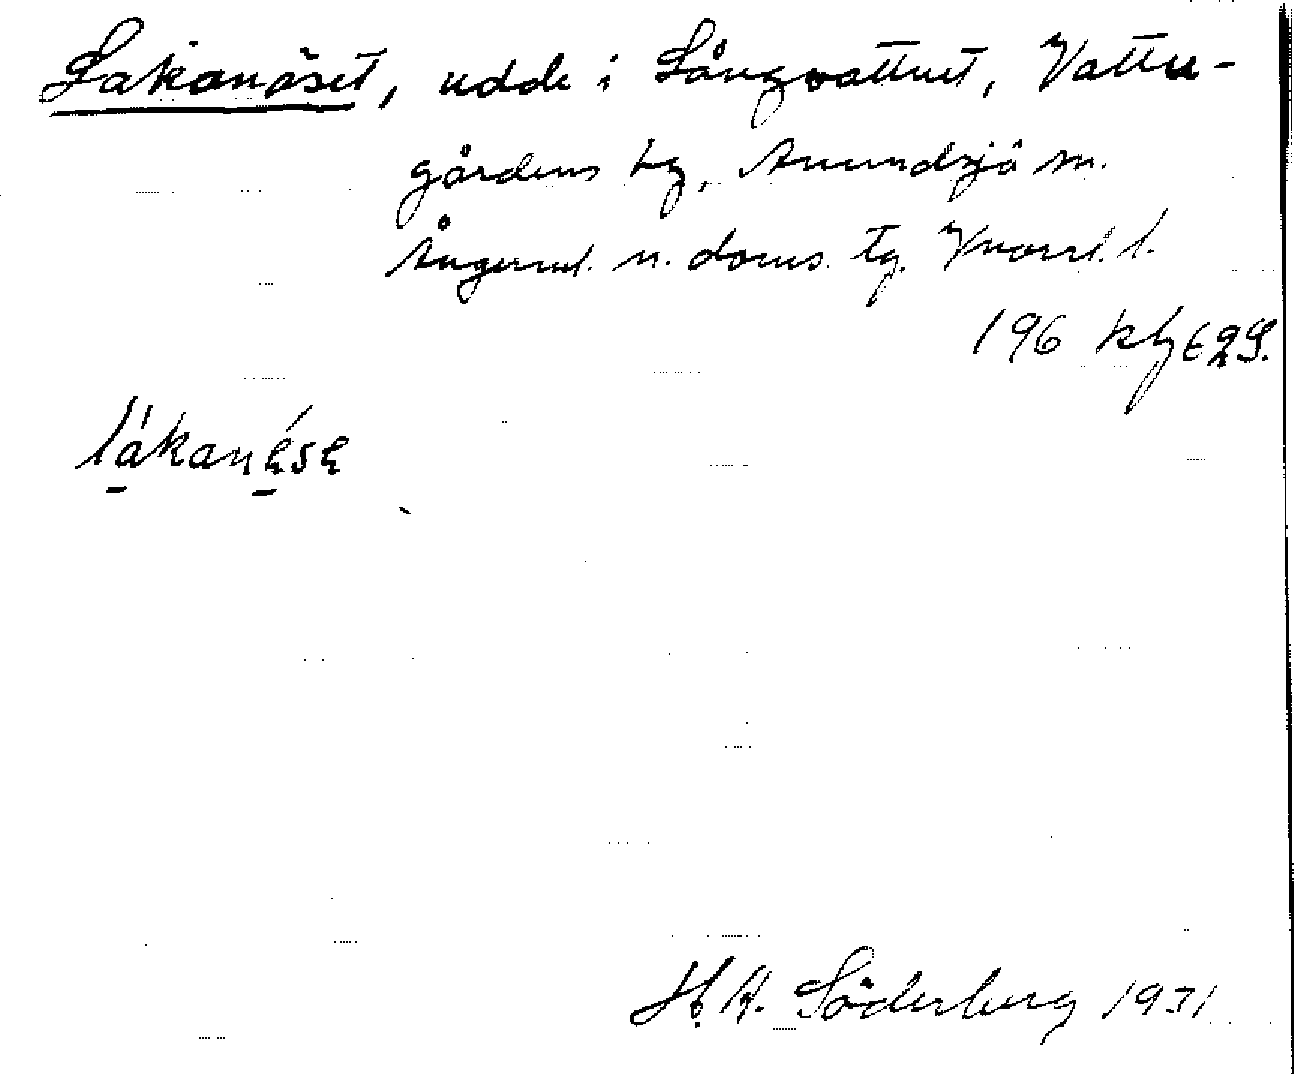 Lakanäset, udde i Långvattnet, Vattu-
gårdens by, Anundsjö sn.
Ångerml. n. doms. tg. Vnorrl. l.
196 kbg E29.
lákanése
H. A. Söderberg 1931